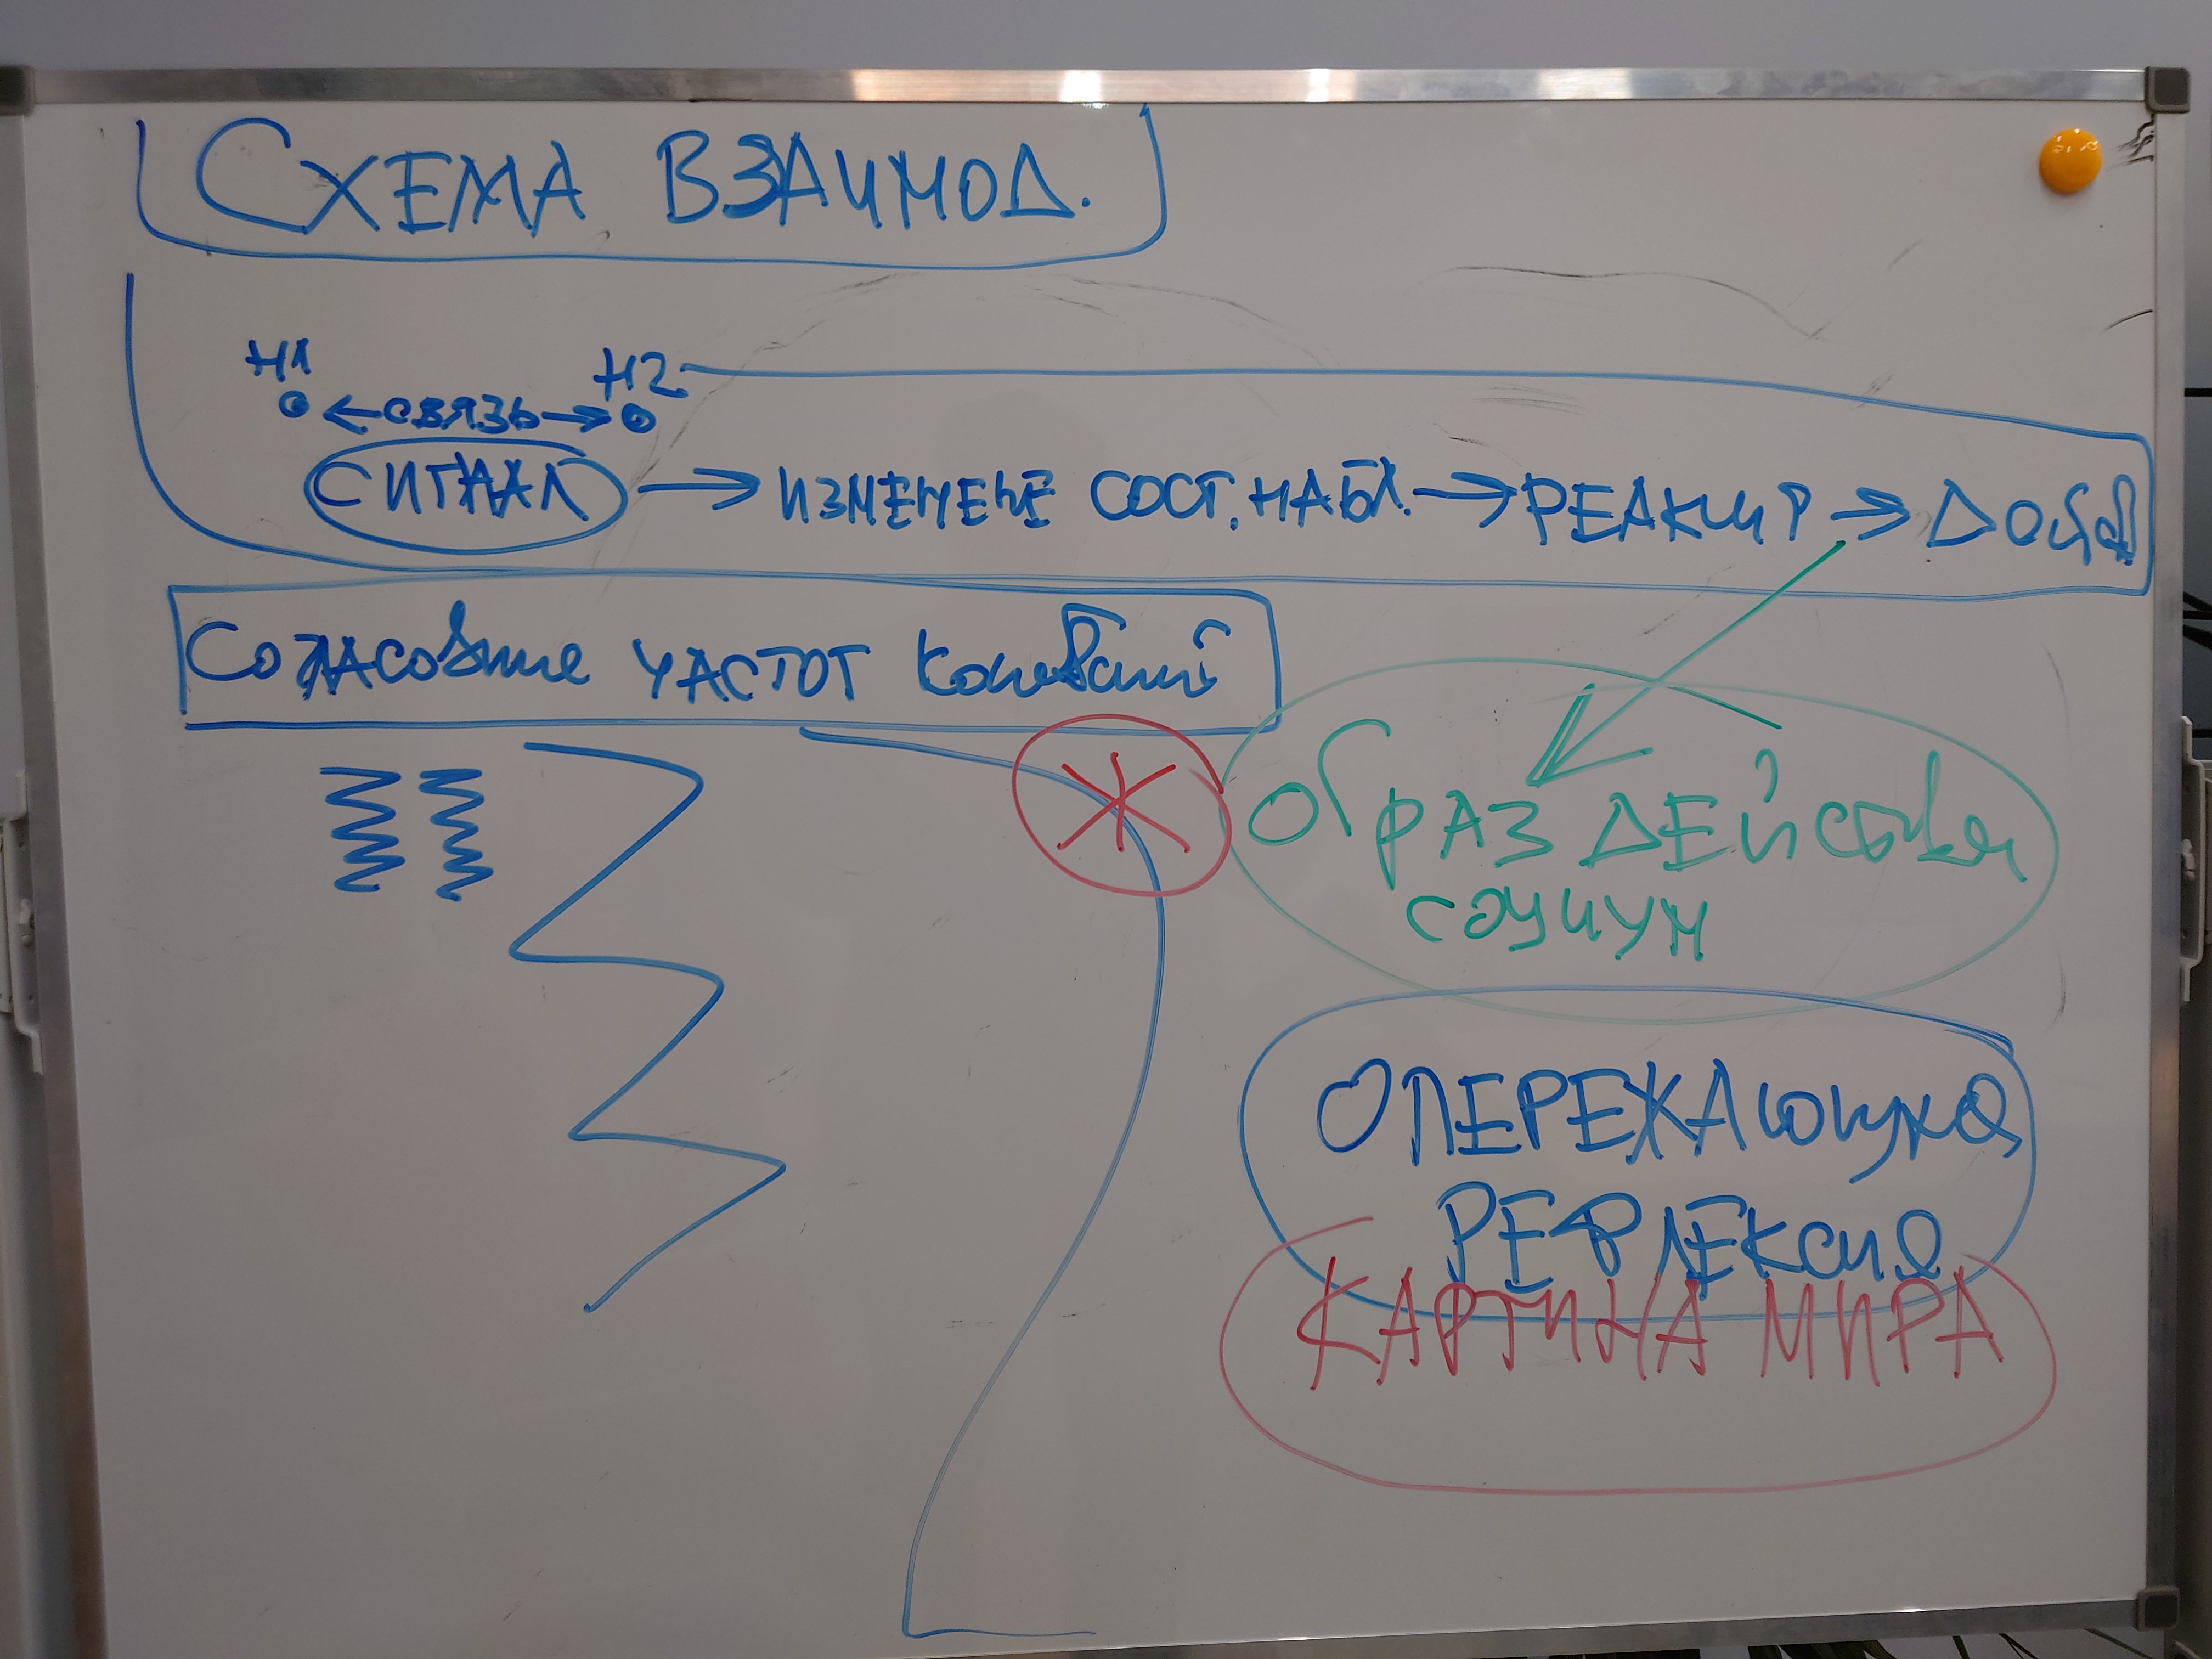 СХЕМА ВЗАИМОД.
Н1 Н2
связь
СИГНАЛ ИЗМЕНЕНИЕ СОСТ. НАБЛ. РЕАКЦИЯ
Согласование частот колебаний
ОБРАЗ ДЕЙСТВИЯ
социум
ОПЕРЕЖАЮЩАЯ
РЕФЛЕКСИЯ
КАРТИНА МИРА